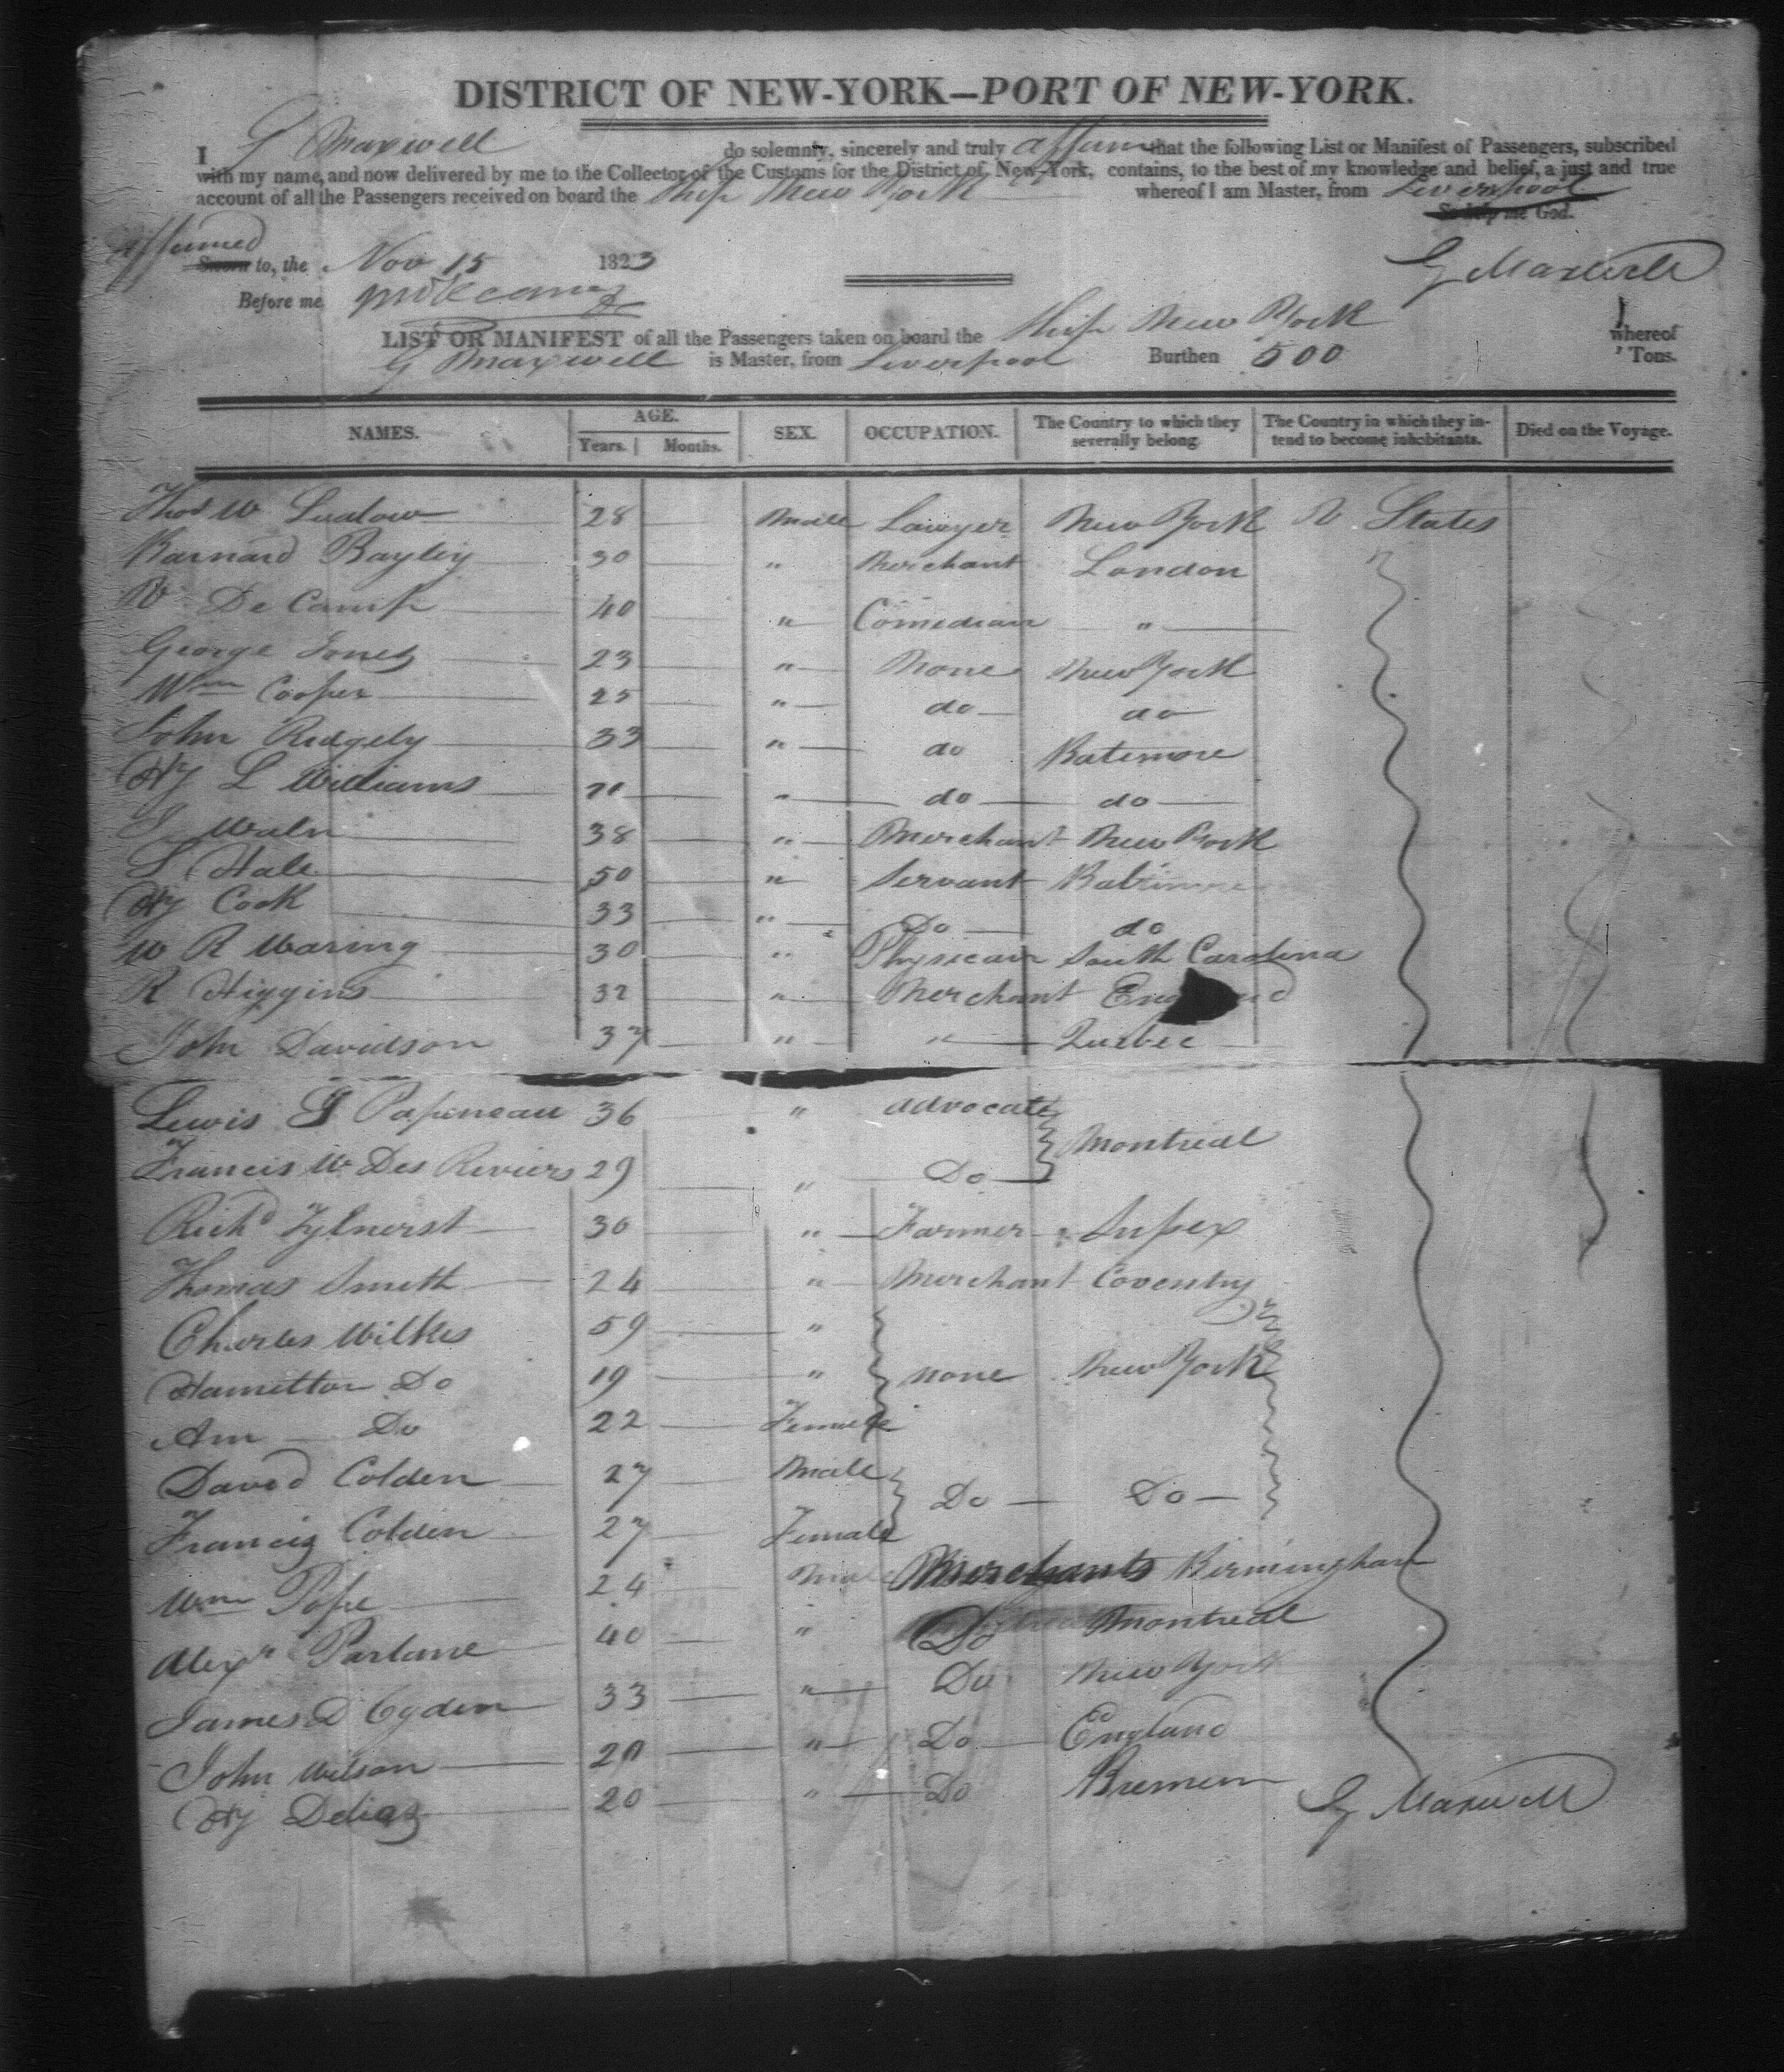 DISTRICT OF NEW-YORK—PORT OF NEW-YORK.
I G Maxwell do solemnly, sincerely and truly affirm that the following List or Manifest of Passengers, subscribed
with my name, and now delivered by me to the Collector of the Customs for the District of New-York, contains, to the best of my knowledge and belief, a just and true
account of all the Passengers received on board the Ship New York whereof I am Master, from Liverpool
So help me God.
affirmed
Sworn to, the Nov 15 1823
G Maxwell
Before me
LIST OR MANIFEST of all the Passengers taken on board the Ship New York whereof
G Maxwell is Master, from Liverpool Burthen 500 Tons.
NAMES. AGE. Years. Months. SEX. OCCUPATION. The Country to which they severally belong. The Country in which they intend to become inhabitants. Died on the Voyage.
Thos W Ludlow 28 Male Lawyer New York U. States
Barnard Bayley 30 " Merchant London
De Camp 40 " Comedian "
George Jones 23 " None New York
Wm Cooper 25 " do do
John Ridgely 33 " do Batimore
Hy L Williams 21 " do do
Waln 38 " Merchant New York
S Hale 50 " Servant Baltimore
Hy Cook 33 " Do do
W R Waring 30 " Physician South Carolina
R Higgins 32 " Merchant England
John Davidson 37 " " Quebec
Lewis J Papineau 36 " advocate
Montreal
Francis W Des Riviers 29 " Do
Richd 30 " Farmer Sussex
Thomas Smith 24 " Merchant Coventry
Charles Wilkes 59 "
Hamilton Do 19 " none New York
Ann Do 22 Female
David Colden 27 Male
Do Do
Francis Colden 27 Female
Wm Pope 24 Male Merchants Birmingham
Alexr Parlane 40 " Do Montreal
James D Ogden 33 " Do New York
John Wilson 20 " Do England
Hy Delius 20 " Do Bremen
G Maxwell